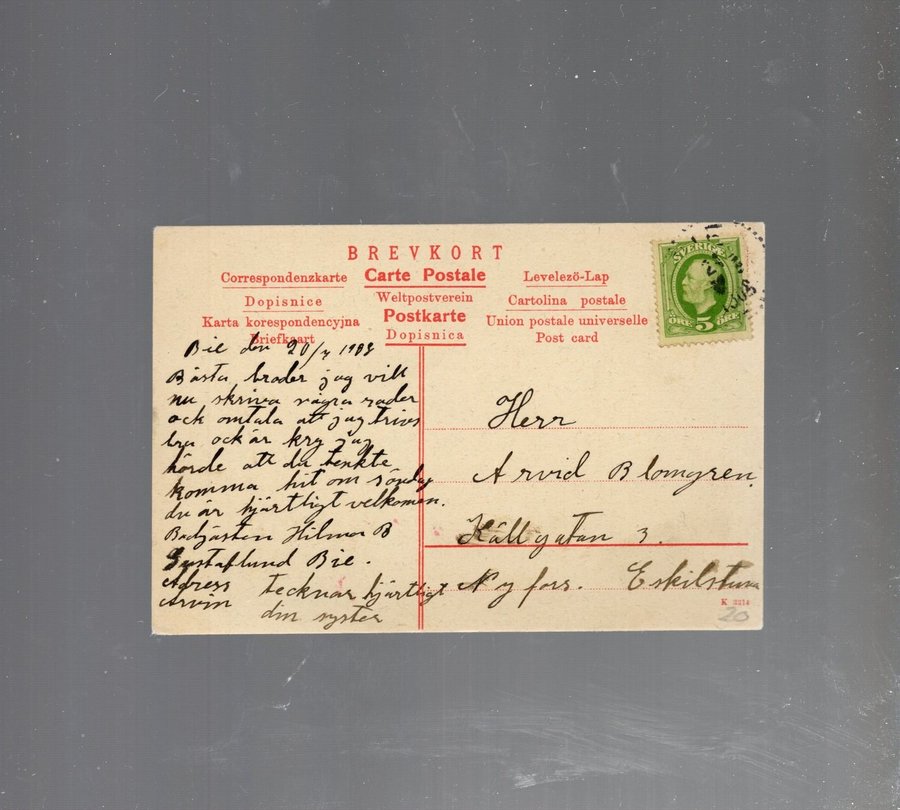 BREVKORT
Correspondenzkarte
Carte Postale
Levelezö-Lap
Dopisnice
Weltpostverein
Cartolina postale
Karta korespondencyjna
Postkarte
Union postale universelle
Briefkaart
Dopisnica
Post card
SVERIGE
ÖRE 5 ÖRE
Bie den 20/7 1908
Bästa broder jag vill
nu skriva några rader
och omtala att jag trives
bra ock är kry jag
hörde att du tenkte
komma hit om söndag
du är hjärtligt velkomen.
Badgästen Hilma B
Gustaflund Bie.
Adress
tecknar hjärtligt
din syster
Herr
Arvid Blomgren.
Källgatan 3.
Nyfors. Eskilstuna
K 2214
20